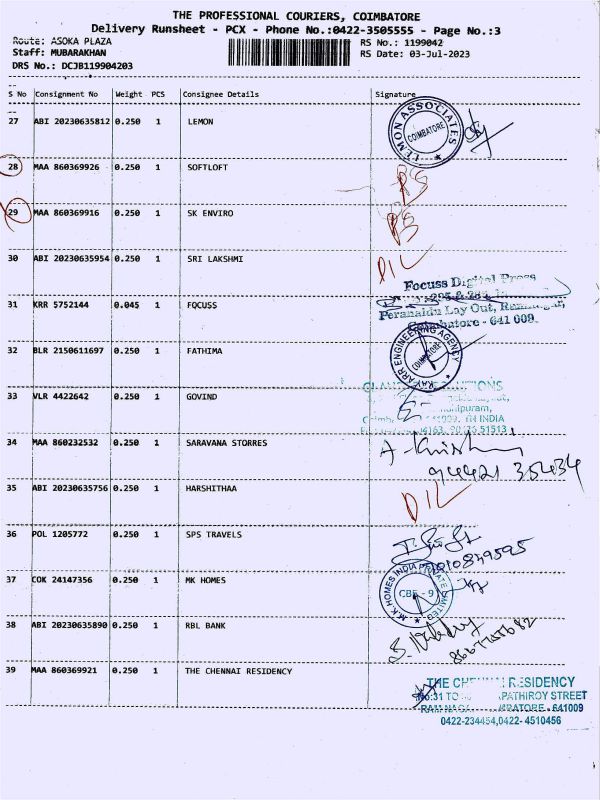 THE PROFESSIONAL COURIERS, COIMBATORE
Delivery Runsheet - PCX - Phone No.:0422-3505555 - Page No.:3
Route: ASOKA PLAZA
RS No.: 1199042
Staff: MUBARAKHAN
RS Date: 03-Jul-2023
DRS No.: DCJB119904203
S No Consignment No Weight PCS Consignee Details Signature
27 ABI 20230635812 0.250 1 LEMON
LEMON ASSOCIATES
COIMBATORE
28 MAA 860369926 0.250 1 SOFTLOFT
29 MAA 860369916 0.250 1 SK ENVIRO
30 ABI 20230635954 0.250 1 SRI LAKSHMI
D/L
Focuss Digital Press
31 KRR 5752144 0.045 1 FOCUSS
Peranaidu Lay Out,
Coimbatore - 641 009.
32 BLR 2150611697 0.250 1 FATHIMA
ENGINEERING AGENCY
COIMBATORE
33 VLR 4422642 0.250 1 GOVIND
INDIA
51513
34 MAA 860232532 0.250 1 SARAVANA STORRES
94421 35434
35 ABI 20230635756 0.250 1 HARSHITHAA
D/L
36 POL 1205772 0.250 1 SPS TRAVELS
37 COK 24147356 0.250 1 MK HOMES
M.K. HOMES INDIA PRIVATE LIMITED
CBE - 9
38 ABI 20230635890 0.250 1 RBL BANK
39 MAA 860369921 0.250 1 THE CHENNAI RESIDENCY
THE CHENNAI RESIDENCY
NO:31 TO PATHIROY STREET
COIMBATORE - 641009
0422-234454,0422- 4510456